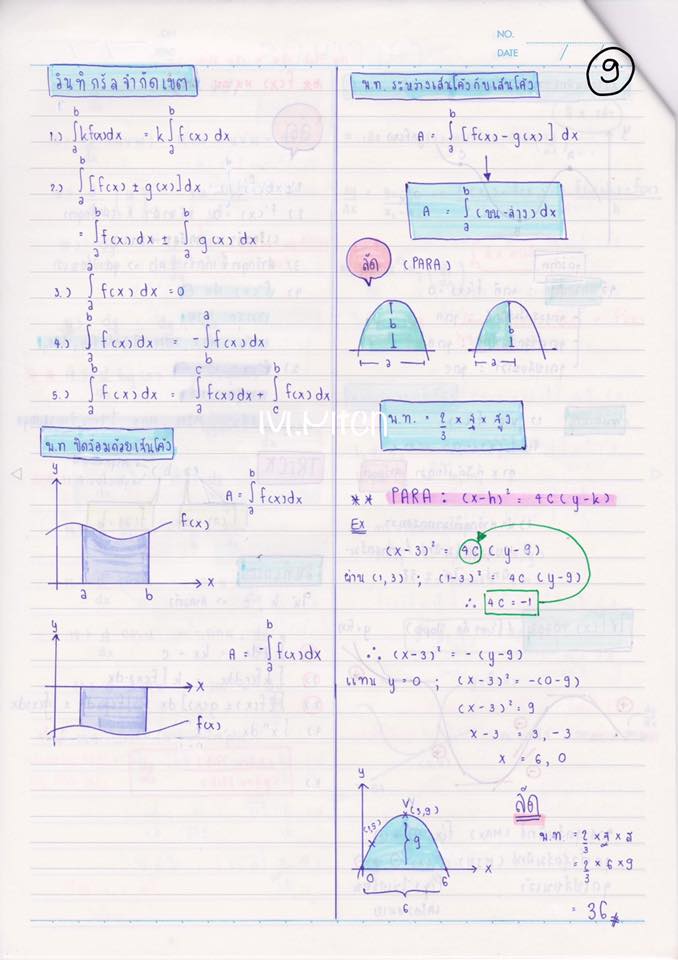 NO.
DATE
9
อินทิกรัลจำกัดเขต
1.) ∫ₐᵇ kf(x)dx = k ∫ₐᵇ f(x) dx
2.) ∫ₐᵇ [f(x) ± g(x)] dx
= ∫ₐᵇ f(x) dx ± ∫ₐᵇ g(x) dx
3.) ∫ₐᵃ f(x) dx = 0
4.) ∫ₐᵇ f(x) dx = -∫_b^a f(x) dx
5.) ∫ₐᵇ f(x) dx = ∫ₐᶜ f(x) dx + ∫_c^b f(x) dx
M.Miton
พ.ท ปิดล้อมด้วยเส้นโค้ง
y
A = ∫ₐᵇ f(x) dx
f(x)
a b x
y
A = -∫ₐᵇ f(x) dx
x
f(x)
พ.ท. ระหว่างเส้นโค้งกับเส้นโค้ง
A = ∫ₐᵇ [f(x) - g(x)] dx
A = ∫ₐᵇ (บน-ล่าง) dx
ลัด (PARA)
b b
a a
พ.ท. = 2/3 × ฐ × สูง
** PARA : (x-h)² = 4C (y-k)
Ex
(x-3)² = 4C (y-9)
ผ่าน (1,3) ; (1-3)² = 4C (y-9)
∴ 4C = -1
∴ (x-3)² = -(y-9)
แทน y=0 ; (x-3)² = -(0-9)
(x-3)² = 9
x-3 = 3, -3
x = 6, 0
y
V(3,9)
(1,5)
9
0 6 x
6
ลัด
พ.ท = 2/3 × ฐ × ส
= 2/3 × 6 × 9
= 36 *